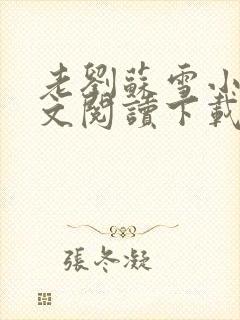 老劉蘇雪小
文閱讀下載
張冬凝